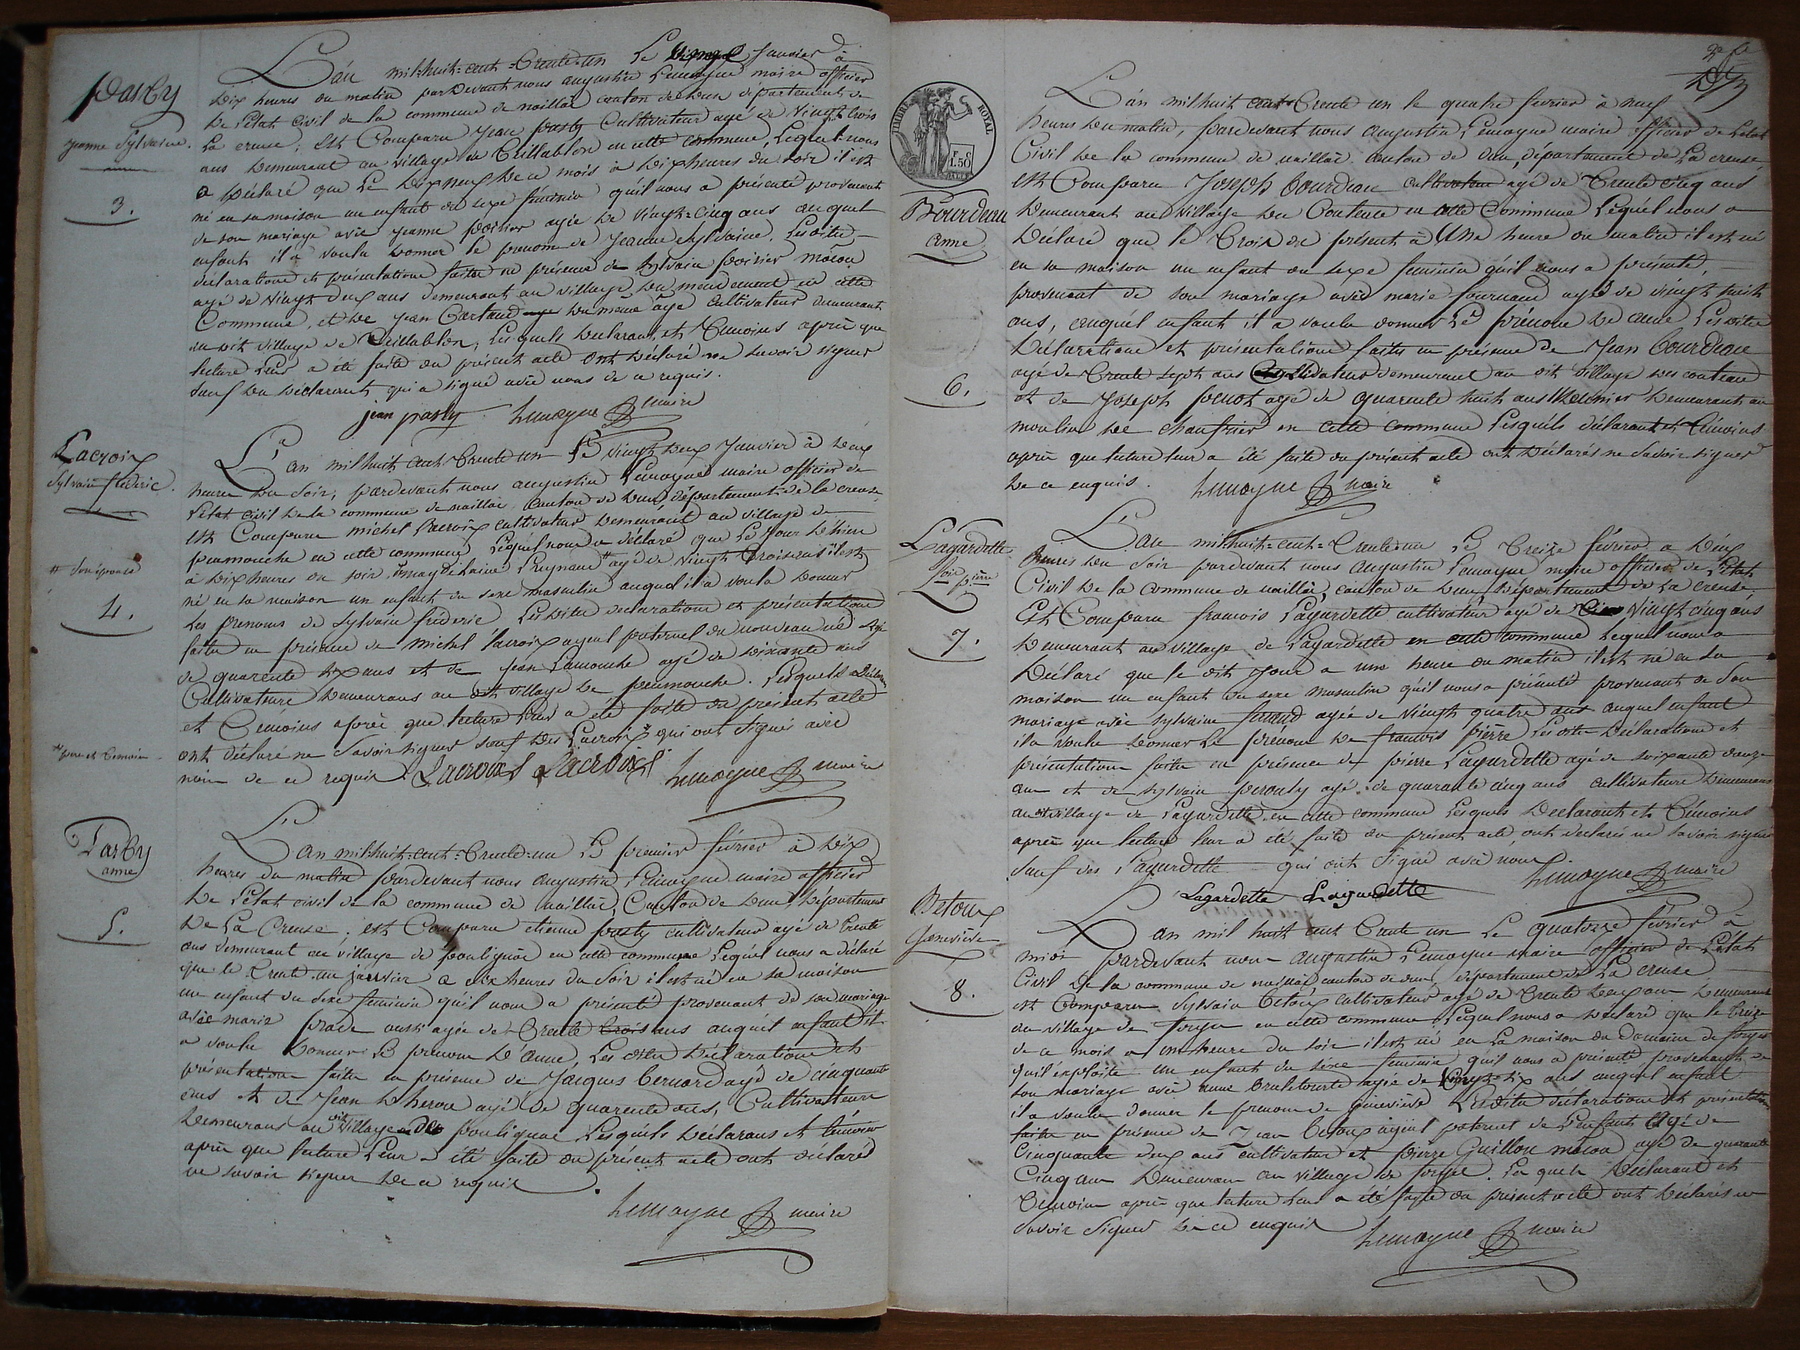 Pasty
jeanne Sylvaine.
3.
L'an mil-huit-cent-trente-un Le vingt janvier à
dix heures du matin pardevant nous augustin Lemoyne maire officier
De l'état Civil de la commune de naillat canton de dun département de
La creuse; Est Comparu Jean pasty Cultivateur agé de vingt trois
ans Demeurant au village de Crillablon en cette commune, Lequel nous
a Déclaré que Le dix neuf De ce mois à dix heures du soir il est
né en sa maison un enfant du sexe féminin qu'il nous a présenté provenant
de son mariage avec jeanne poirier agée De vingt-cinq ans auquel
enfant il a voulu Donner le prenom de Jeanne Sylvaine. Les dites
déclarations et présentation faites en présence de Sylvain poirier maçon
agé de vingt deux ans demeurant au village du in cette
Commune, et De Jean Du même âge Cultivateur demeurant
au dit village de Crillablon, Lesquels Déclarant et Témoins après que
lecture Leur a été faite du présent acte Ont Déclaré ne Savoir signer
Sauf Du Déclarant qui a signé avec nous de ce requis.
jean pasty Lemoyne maire
Lacroix
Sylvain fréderic.
4.
# Son épouse
L'an mil huit cent Trente-un Le vingt deux Janvier à deux
heures Du Soir, pardevant nous augustin Lemoyne maire officier de
l'état civil de la commune de naillat, canton de Dun, département de la creuse
Est Comparu michel Lacroix cultivateur Demeurant au village de
peumouche en cette commune, Lequel nous a déclaré que Le jour d'hier
à Dix heures du soir magdelaine Peynaud # agé de vingt Trois ans il est
né en sa maison un enfant du sexe masculin auquel il a voulu Donner
Les prenoms de Sylvain fréderic Les Dites declarations et présentation
faites en présence de michel lacroix ayeul paternel du nouveau né agé
de quarente six ans et de jean Lamouche agé de soixante ans
Cultivateurs Demeurans au dit village De peumouche. Lesquels Déclarant
et Temoins après que lecture Leur a été faite du présent acte
ont déclaré ne Savoir signer sauf Des Lacroix # qui ont signés avec
nous de ce requis. Lacroix Lacroix Lemoyne maire
# pere et temoin
Pasty
anne
5.
L'an mil-huit-cent-Trente-un Le premier février à Dix
heures du matin pardevant nous augustin Lemoyne maire officier
De l'état civil de la commune de naillat, Canton de Dun, département
De La Creuse; est Comparu etienne pasty cultivateur agé de Trente
ans demeurant au village de poulignac en cette commune Lequel nous a déclaré
que le Trente un janvier à dix heures du soir il est né en sa maison
un enfant du sexe féminin qu'il nous a présenté provenant de son mariage
avec marie prade aussi agée de Trente trois ans auquel enfant il
a voulu Donner Le prenom De anne Les dites Déclarations et
présentation faites en présence de Jacques bernard agé de cinquante
ans et de Jean agé de quarente ans, Cultivateurs
Demeurans au dit village de poulignac Lesquels Déclarans et temoins
après que lecture Leur a été faite du présent acte ont déclaré
ne savoir signer De ce requis.
Lemoyne maire
TIMBRE ROYAL
1.50
Bourdeau
anne
6.
L'an mil huit cent Trente un le quatre fevrier à neuf
heures Du matin, pardevant nous augustin Lemoyne maire officier de L'état
Civil De la commune de naillat canton de dun, département de La creuse
est Comparu Joseph bourdeau cultivateur agé de Trente cinq ans
Demeurant au village Du Couteau en cette Commune Lequel nous a
Déclaré que le Trois du présent à Une heure du matin il est né
en sa maison un enfant du sexe feminin qu'il nous a présenté,
provenant de son mariage avec marie fournaud agée de vingt huit
ans, auquel enfant il a voulu donner Le prénom De anne Les dites
Déclarations et présentations faites en présence De Jean bourdeau
agé de Trente sept ans Cultivateur demeurant au dit village Des couteau
et de Joseph penot agé de quarante huit ans Meunier Demeurant au
moulin De chanfrier en cette commune Lesquels déclarant et Témoins
après que lecture leur a été faite du présent acte ont Déclarés ne Savoir signer
De ce enquis. Lemoyne maire
Lagardette
françois pierre
7.
L'an mil-huit-cent-Trente-un Le Treize février à deux
heures Du Soir pardevant nous augustin Lemoyne maire officier de l'état
Civil De la commune de naillat, canton de Dun, Département de La Creuse;
Est Comparu francois Lagardette cultivateur agé de vingt cinq ans
Demeurant au village de Lagardette en cette commune Lequel nous a
Déclaré que le dit jour à une heure du matin il est né en sa
maison un enfant du sexe masculin qu'il nous a présenté provenant de Son
mariage avec sylvaine agée de vingt quatre ans auquel enfant
il a voulu Donner Le prénom De francois pierre Les dites Déclarations et
présentation faites en présence de pierre Lagardette agé de soixante douze
ans et de sylvain agé de quarante cinq ans cultivateurs Demeurans
au dit village de Lagardette en cette commune Lesquels Declarants et Témoins
après que lecture leur a été faite du présent acte, ont déclarés ne savoir signer
Sauf des Lagardette qui ont Signé avec nous. Lemoyne maire
Lagardette Lagardette
Betoux
Geneviève
8.
L'an mil huit cent Trente un Le quatorze février à
midi pardevant nous augustin Lemoyne maire officier de L'état
Civil De la commune de naillat canton de dun, département de La Creuse
est Comparu Sylvain betoux Cultivateur agé de Trente deux ans Demeurant
au village de forges en cette commune Lequel nous a Déclaré que le treize
de ce mois a une heure du soir il est né en La maison du Domaine de forges
qu'il exploite un enfant du sexe feminin qu'il nous a présenté provenant de
son mariage avec anne agée de vingt-six ans auquel enfant
il a voulu donner le prenom de Geneviève Lesdites déclarations et présentation
faites en présence de Jean betoux ayeul paternel de l'enfant Agé de
Cinquante deux ans cultivateur et pierre Guillon maçon agé de quarante
Cinq ans Demeurans au village de forges. Lesquels Déclarant et
Temoins après que lecture leur a été faite du présent acte ont Déclarés ne
Savoir Signer de ce enquis Lemoyne maire